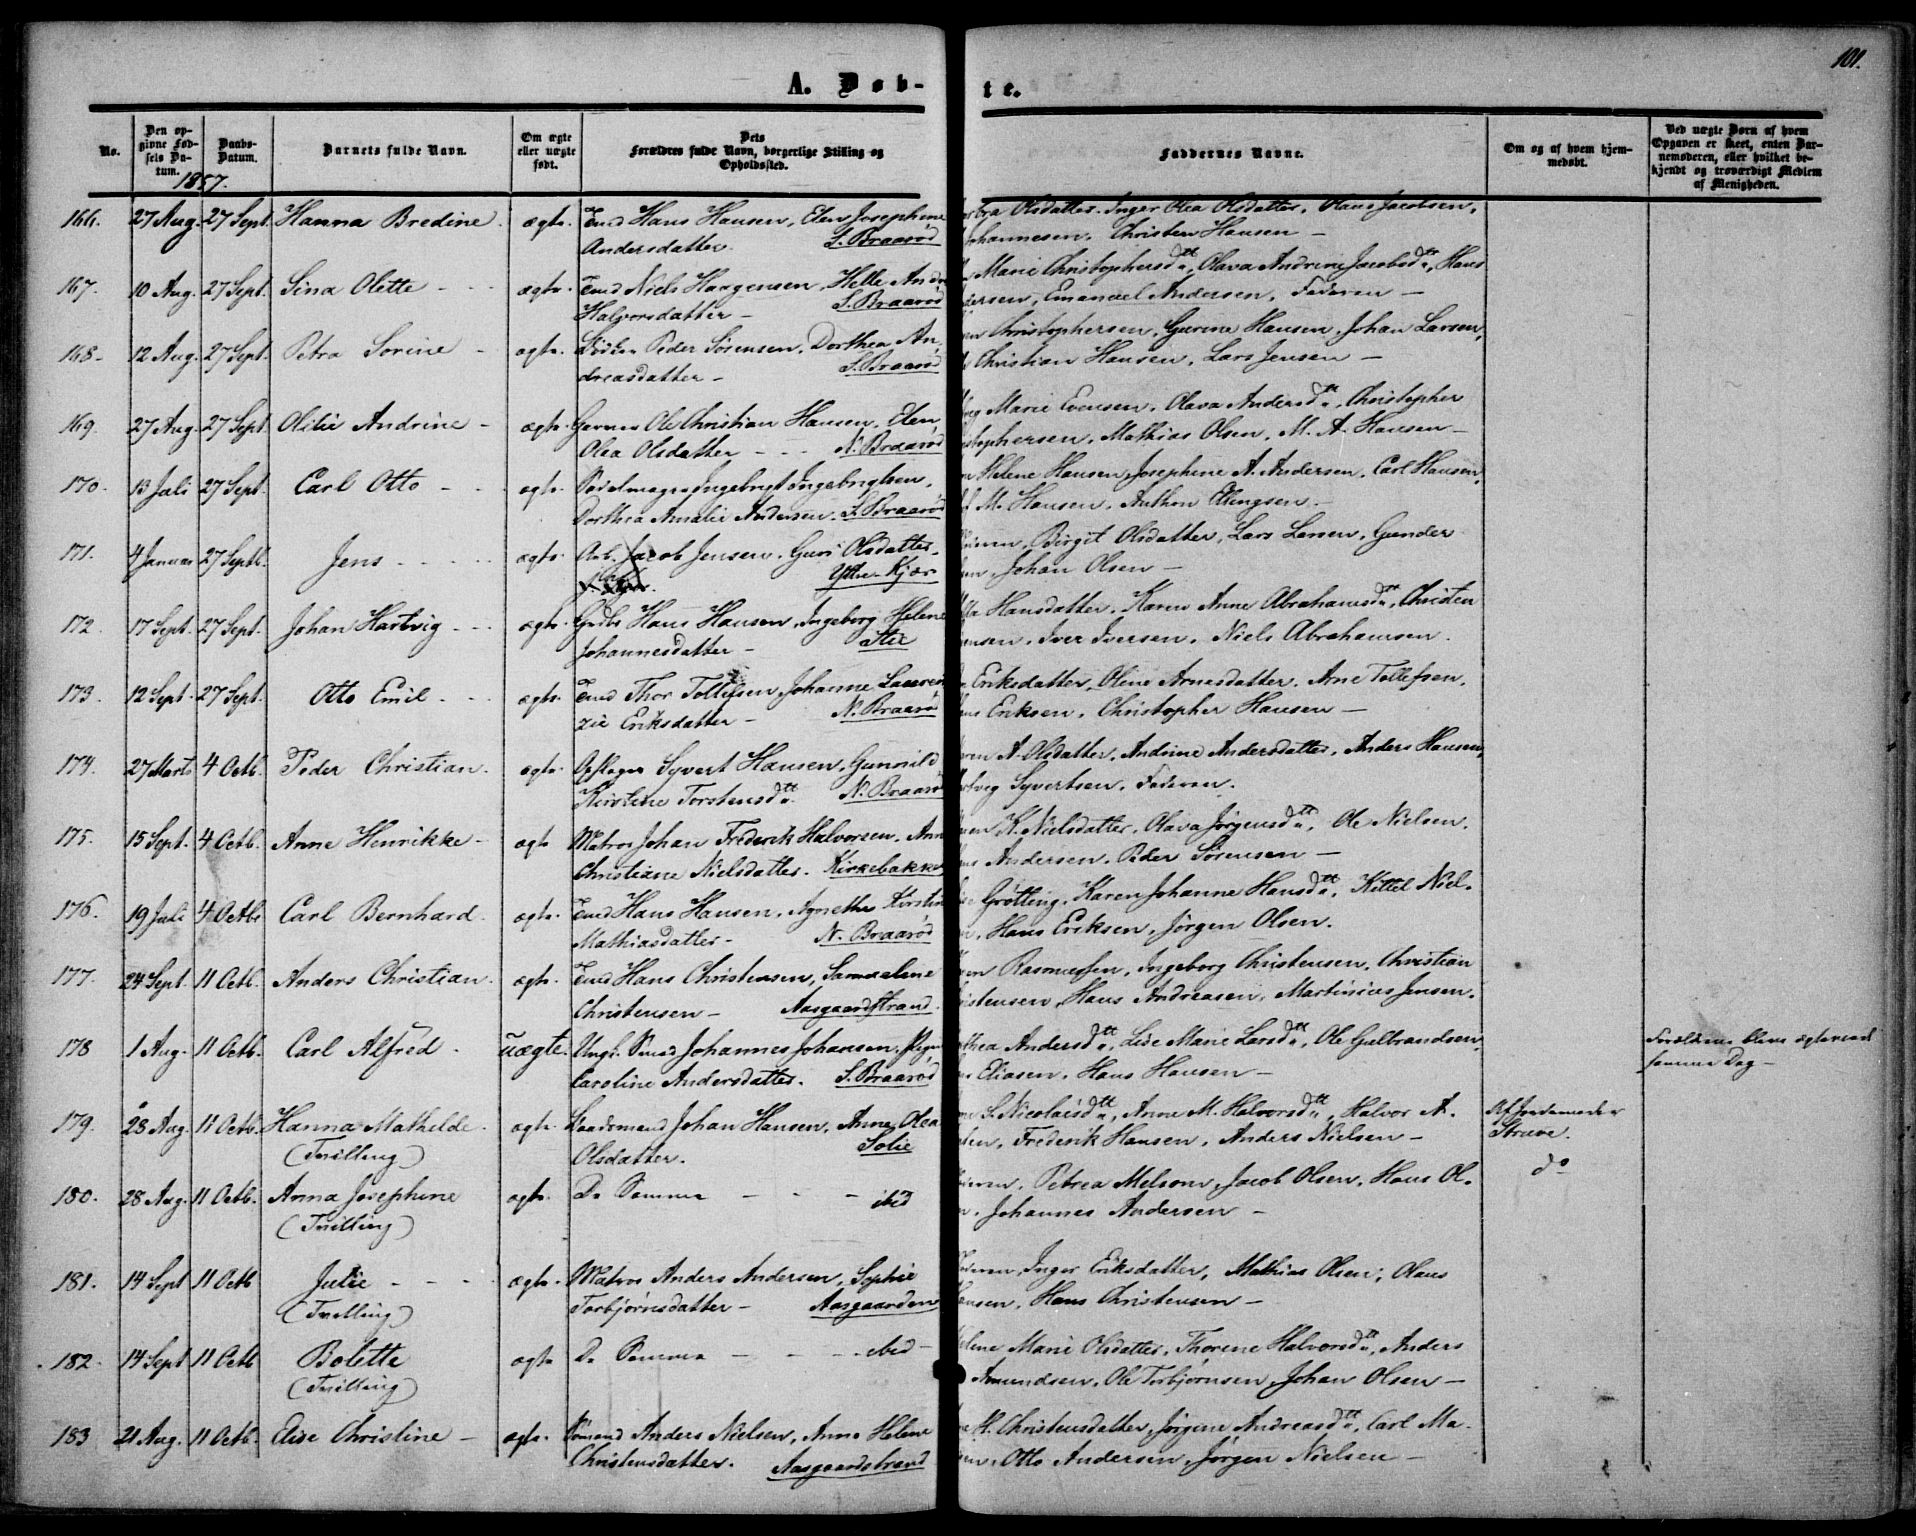 101.
A. Døb-
te.
No.
Den op-
givne Fød-
sels Da-
tum.
Daabs-
Datum.
Barnets fulde Navn.
Om ægte
eller uægte
født.
Dets
Forældres fulde Navn, borgerlige Stilling og
Opholdssted.
Faddernes Navne.
Om og af hvem hjem-
medøbt.
Ved uægte Børn af hvem
Opgaven er skeet, enten Bar-
nemoderen, eller hvilket be-
kjendt og troværdigt Medlem
af Menigheden.
1857.
166. 27 Aug. 27 Sept. Hanna Bredine. ægte. Hans Hansen, Elen Josephine
Andersdatter. S. Braarød
Olsdatter. Inger Olea Olsdatter, Olaus Jacobsen,
Johannesen. Christen Hansen —
167. 10 Aug. 27 Sept. Sina Olette - - ægte. Niels Haagensen, Helle
Halvorsdatter — S. Braarød
Marie Christophersdtt., Olava Andrine Jacobsdtt., Hans
Emanuel Andersen, Faderen —
168. 12 Aug. 27 Sept. Petra Sorine - ægte. Peder Sörensen, Dorthea An-
dreasdatter — S. Braarød
Christophersen, Gurine Hansen, Johan Larsen,
Christian Hansen, Lars Jensen —
169. 27 Aug. 27 Sept. Olilie Andrine - ægte. Garver Ole Christian Hansen, Elen
Olea Olsdatter - - - N. Braarød
Marie Evensen, Olava Andersdtt., Christopher
Mathias Olsen, M. A. Hansen —
170. 13 Juli 27 Sept. Carl Otto - - ægte. Ingebrigt Ingebrigtsen,
Dorthea Amalie Andersen. S. Braarød
Helene Hansen, Josephine A. Andersen, Carl Hansen,
M. Hansen, Anthon Ellingsen —
171. 4 Januar 27 Septb. Jens - - - - ægte. Arb. Jacob Jensen, Guri Olsdatter,
Yttre Kjær
Birgit Olsdatter, Lars Larsen, Gunder
Johan Olsen —
172. 17 Sept. 27 Sept. Johan Hartvig - - ægte. Hans Hansen, Ingeborg Helene
Johannesdatter — Stie
Hansdatter, Karen Anne Abrahamsdtt., Christen
Iver Iversen, Niels Abrahamsen.
173. 12 Sept. 27 Sept. Otto Emil - - ægte. Thor Tollefsen, Johanne Lauren-
zie Eriksdatter — N. Braarød
Eriksdatter, Oline Arnesdatter, Arne Tollefsen,
Eriksen, Christopher Hansen —
174. 27 Marts 4 Octb. Peder Christian. ægte. Syvert Hansen, Gunnild
Kirstine Torstensdtt. N. Braarød
A. Olsdatter, Andrine Andersdatter, Anders Hansen,
Syvertsen, Faderen.
175. 15 Sept. 4 Octb. Anne Henrikke - ægte Matros Johan Frederik Halvorsen, Anne
Christiane Nielsdatter. Kirkebakken
K. Nielsdatter, Olava Jörgensdtt., Ole Nielsen,
Andersen, Peder Sörensen —
176. 19 Juli 4 Octb. Carl Bernhard. ægte. Hans Hansen, Agnethe Kirstine
Mathiasdatter — N. Braarød
Grötting, Karen Johanne Hansdtt., Kittel Niel-
Hans Eriksen, Jörgen Olsen.
177. 24 Sept. 11 Octb. Anders Christian. ægte. Hans Christensen, Samueline
Christensen — Aasgaardstrand.
Rasmussen, Ingeborg Christensen, Christian
Hans Andreasen, Martinius Jensen.
178 1 Aug. 11 Octb. Carl Alfred. uægte. Johannes Johansen, Pige
Caroline Andersdatter. S. Braarød
Andersdtt., Lise Marie Larsdtt., Ole Gulbrandsen,
Eliasen, Hans Hansen —
Forældrene bleve ægteviede
samme Dag —
179. 28 Aug. 11 Octb. Hanna Mathilde. ægte. Johan Hansen, Anne Olea
(Tvilling) Olsdatter. Solie
S. Nicolaisdtt., Anne M. Halvorsdtt., Halvor A.
Frederik Hansen, Anders Nielsen —
Af Jordemoder
Struve.
180. 28 Aug. 11 Octb. Anna Josephine ægte. De Samme - - - ibid
(Tvilling)
Petrea Melsom, Jacob Olsen, Hans Ol-
Johannes Andersen —
do
181. 14 Sept 11 Octb Julie - - - ægte. Matros Anders Andersen, Sophie
(Tvilling) Torbjörnsdatter — Aasgaarden
Inger Eriksdatter, Mathias Olsen, Olaus
Hansen, Hans Christensen —
182. 14 Sept 11 Octb Bolette ægte De Samme - - - ibid —
(Tvilling)
Marie Olsdatter, Thorine Halvorsdtt., Anders
Amundsen, Ole Torbjörnsen, Johan Olsen —
183 21 Aug. 11 Octb. Elise Christine - ægte. Sömand Anders Nielsen, Anne Helene
Christensdatter. Aasgaardstrand
H. Christensdatter, Jörgine Andreasdtt., Carl Ma-
Otto Andersen, Jörgen Nielsen —